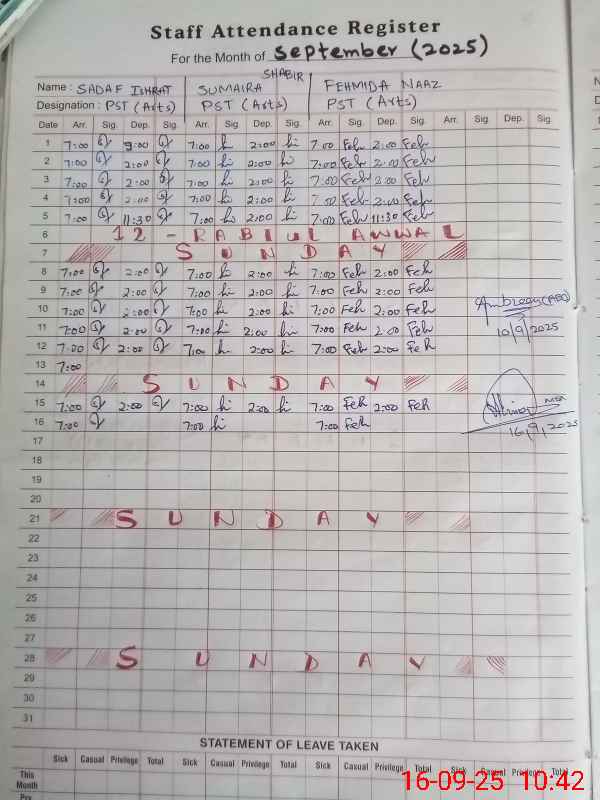 Staff Attendance Register
For the Month of September (2025)
Name : SADAF ISHRAT SUMAIRA SHABIR FEHMIDA NAAZ
Designation : PST (Arts) PST (Arts) PST (Arts)
Date Arr. Sig. Dep. Sig. Arr. Sig. Dep. Sig. Arr. Sig. Dep. Sig. Arr. Sig. Dep. Sig.
1 7:00 2:00 7:00 2:00 7:00 Feh 2:00 Feh
2 7:00 2:00 7:00 2:00 7:00 Feh 2:00 Feh
3 7:00 2:00 7:00 2:00 7:00 Feh 2:00 Feh
4 7:00 2:00 7:00 2:00 7:00 Feh 2:00 Feh
5 7:00 11:30 7:00 2:00 7:00 Feh 11:30 Feh
6 12 - RABIUL AWWAL
7 SUNDAY
8 7:00 2:00 7:00 2:00 7:00 Feh 2:00 Feh
9 7:00 2:00 7:00 2:00 7:00 Feh 2:00 Feh
10 7:00 2:00 7:00 2:00 7:00 Feh 2:00 Feh
11 7:00 2:00 7:00 2:00 7:00 Feh 2:00 Feh 10/9/2025
12 7:00 2:00 7:00 2:00 7:00 Feh 2:00 Feh
13 7:00
14 SUNDAY
15 7:00 2:00 7:00 2:00 7:00 Feh 2:00 Feh
16 7:00 7:00 7:00 Feh 16/9/2025
17
18
19
20
21 SUNDAY
22
23
24
25
26
27
28 SUNDAY
29
30
31
STATEMENT OF LEAVE TAKEN
Sick Casual Privilege Total Sick Casual Privilege Total Sick Casual Privilege Total Sick Casual Privilege Total
This Month
16-09-25 10:42